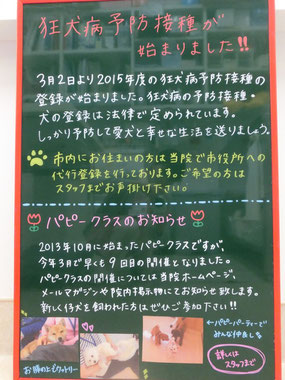 狂犬病予防接種が
始まりました!!
3月2日より2015年度の狂犬病予防接種の
登録が始まりました。狂犬病の予防接種・
犬の登録は法律で定められています。
しっかり予防して愛犬と幸せな生活を送りましょう。
市内にお住まいの方は当院で市役所への
代行登録を行っております。ご希望の方は
スタッフまでお声掛け下さい。
パピークラスのお知らせ
2013年10月に始まったパピークラスですが、
今年3月で早くも9回目の開催となりました。
パピークラスの開催については当院ホームページ、
メールマガジンや院内掲示物にてお知らせ致します。
新しく仔犬を飼われた方はぜひご参加下さい!!
←パピーパーティーで
みんな仲良しな
詳しくは
スタッフまで
お膝の上で